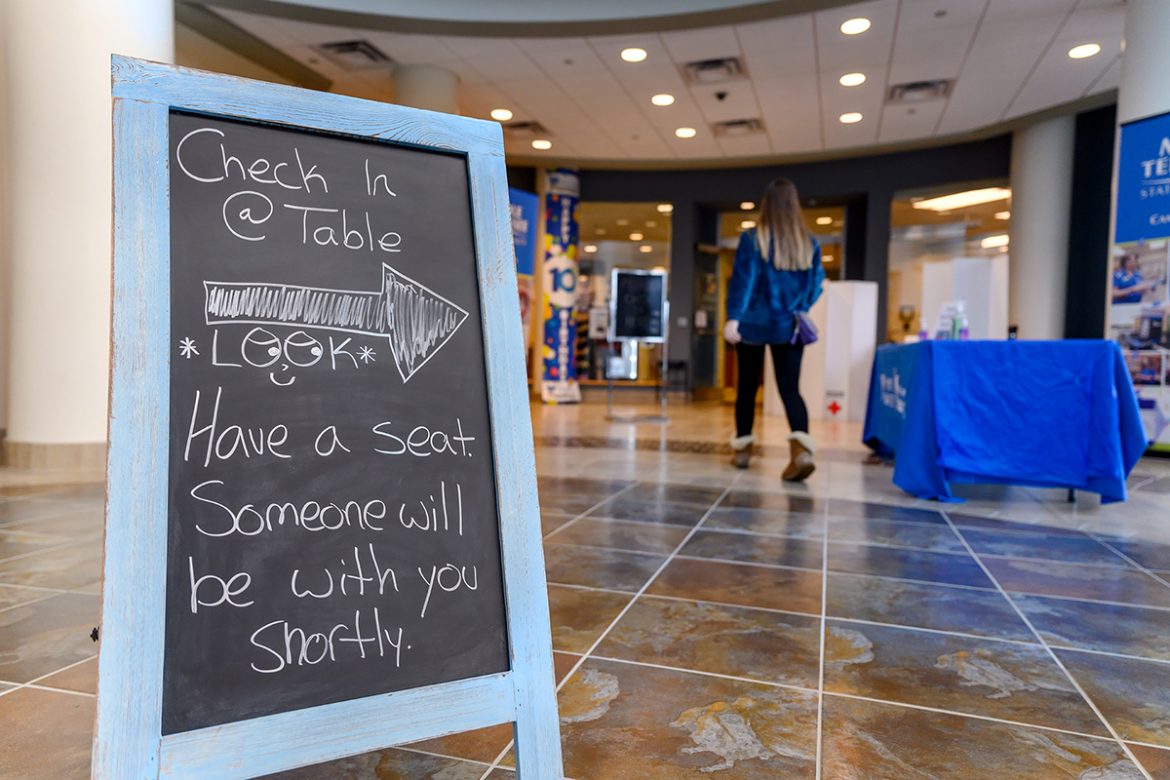 Check In
@ Table
*LOOK*
Have a seat.
Someone will
be with you
shortly.
10